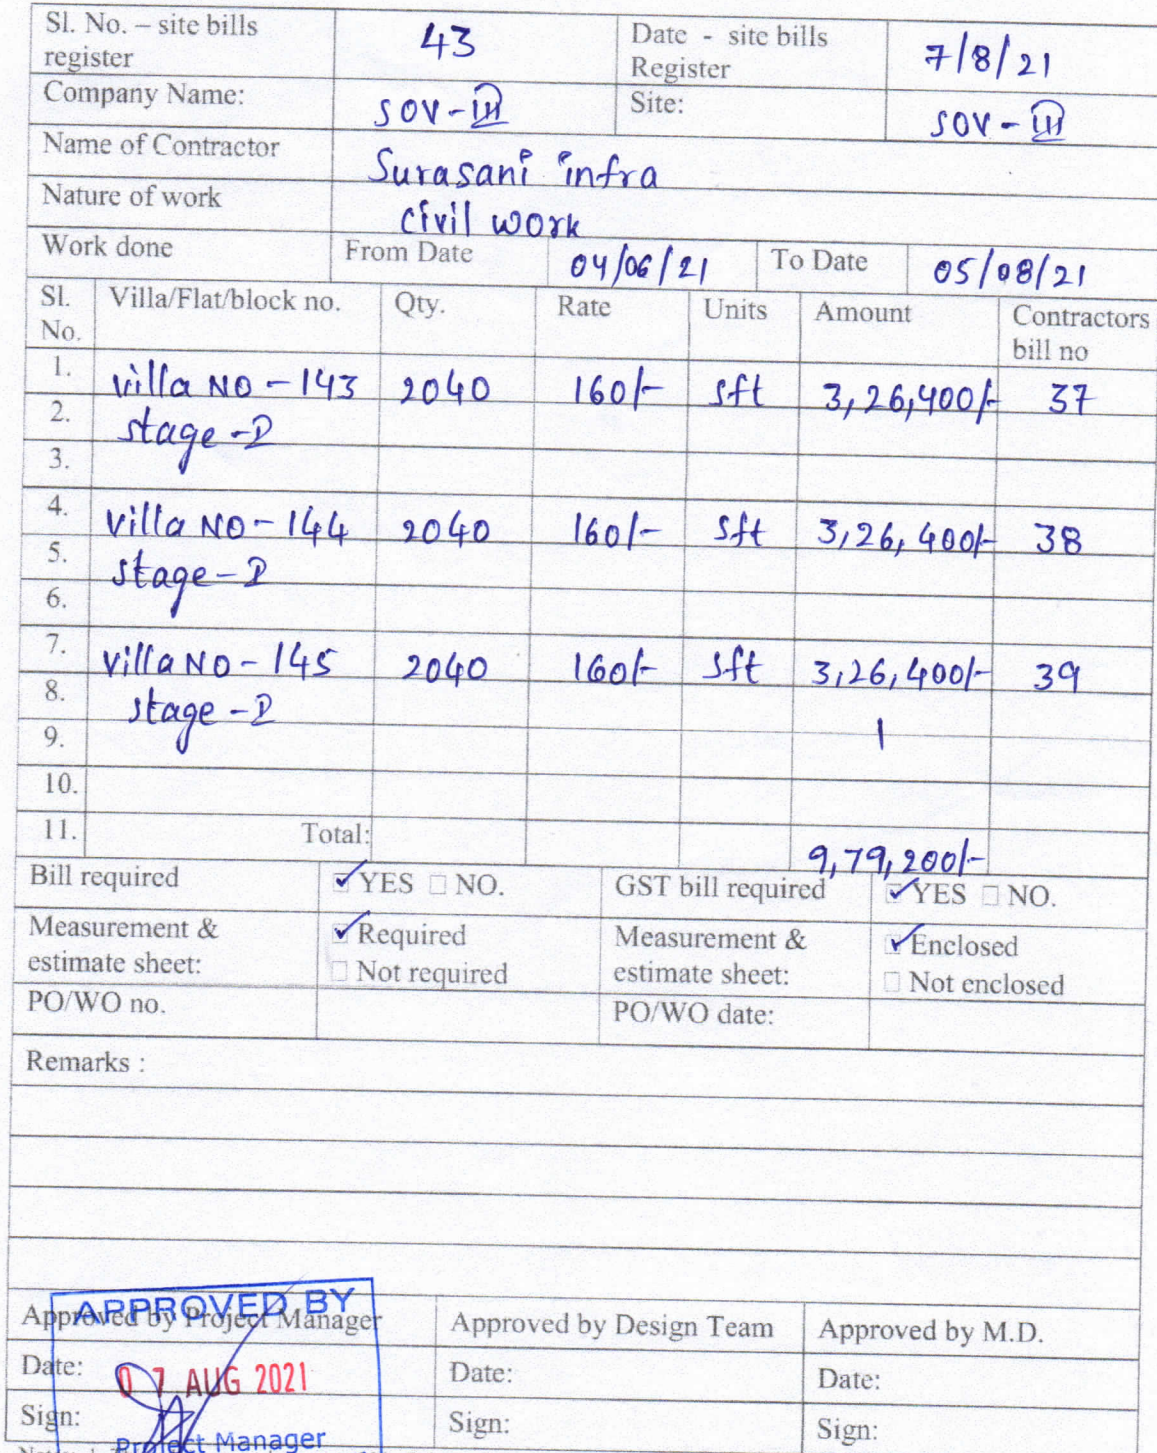 Sl. No. – site bills register 43 Date - site bills Register 7/8/21
Company Name: SOV-III Site: SOV-III
Name of Contractor Surasani infra
Nature of work civil work
Work done From Date 04/06/21 To Date 05/08/21
Sl. No. Villa/Flat/block no. Qty. Rate Units Amount Contractors bill no
1. villa NO - 143 2040 160/- sft 3,26,400/- 37
2. stage - D
3.
4. villa NO - 144 2040 160/- sft 3,26,400/- 38
5. stage - D
6.
7. villa NO - 145 2040 160/- sft 3,26,400/- 39
8. stage - D
9.
10.
11. Total: 9,79,200/-
Bill required YES NO. GST bill required YES NO.
Measurement & estimate sheet: Required Not required Measurement & estimate sheet: Enclosed Not enclosed
PO/WO no. PO/WO date:
Remarks :
APPROVED BY
Approved by Project Manager Approved by Design Team Approved by M.D.
Date: 07 AUG 2021 Date: Date:
Sign: Sign: Sign:
Project Manager